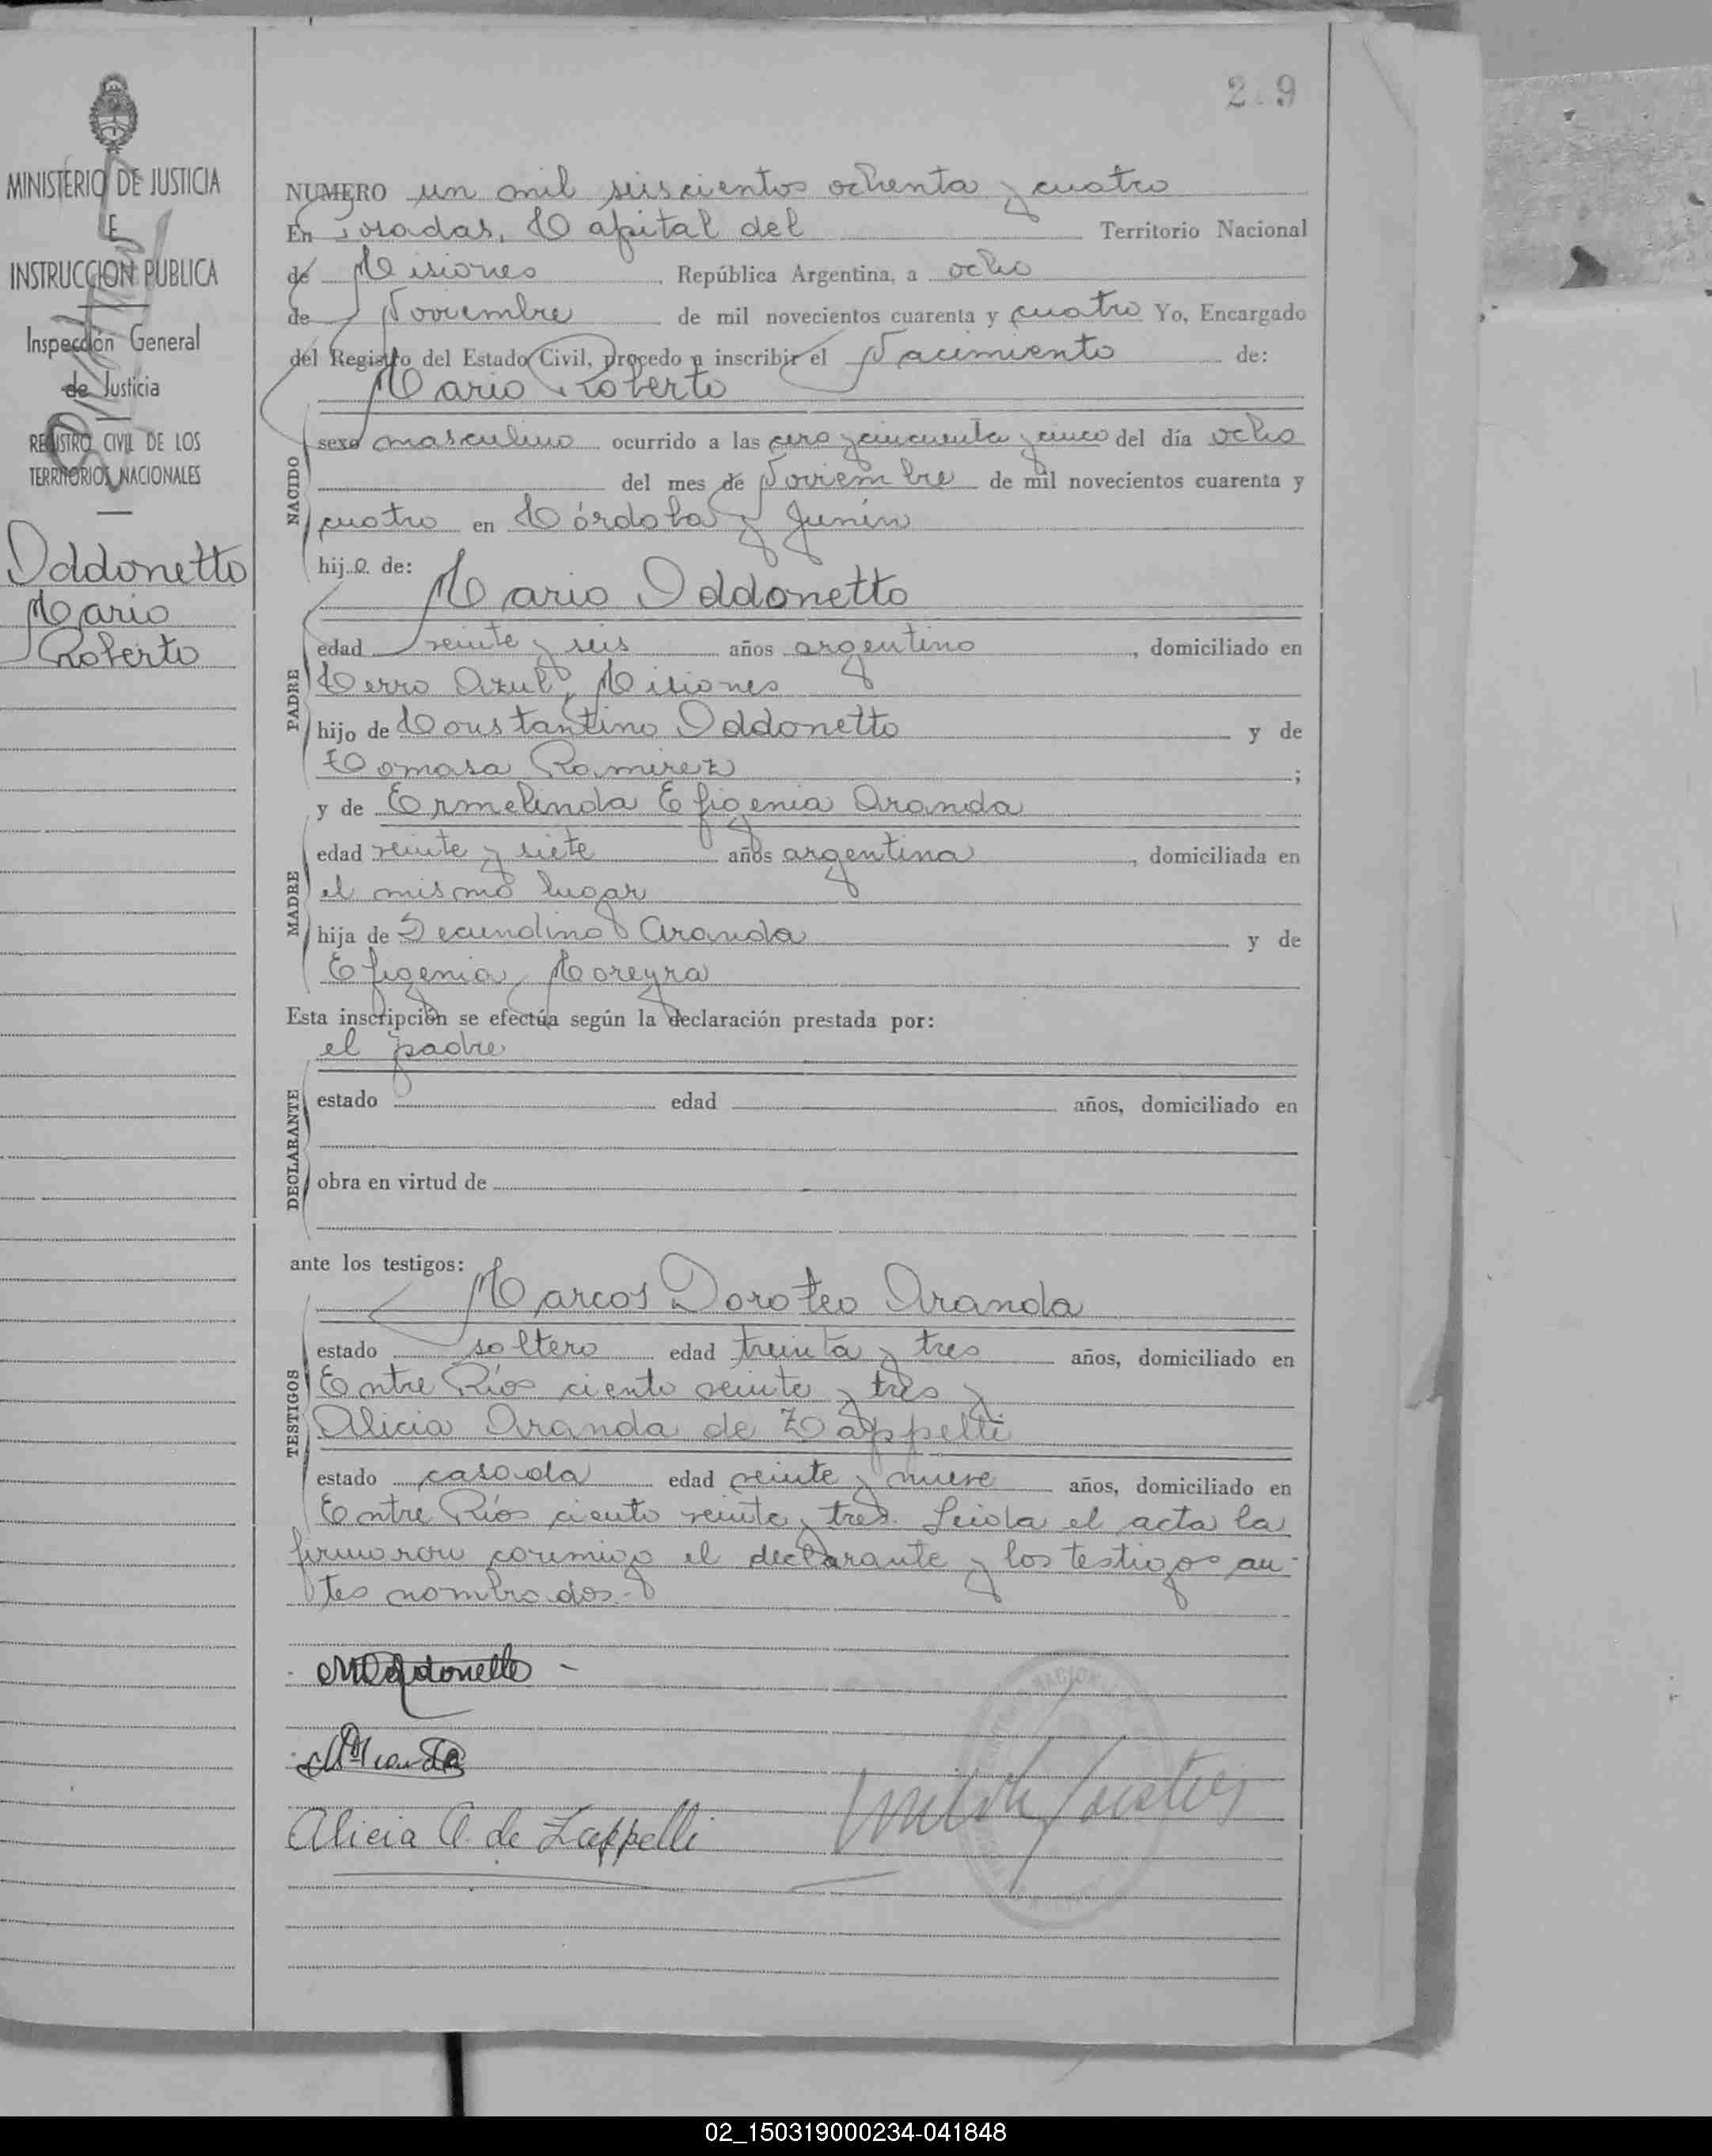 2 9
MINISTERIO DE JUSTICIA
E
INSTRUCCION PUBLICA
Inspección General
de Justicia
REGISTRO CIVIL DE LOS
TERRITORIOS NACIONALES
Oddonetto
Mario
Roberto
NUMERO un mil seiscientos ochenta y cuatro
En Posadas, Capital del Territorio Nacional
de Misiones, República Argentina, a ocho
de Noviembre de mil novecientos cuarenta y cuatro Yo, Encargado
del Registro del Estado Civil, procedo a inscribir el Nacimiento de:
Mario Roberto
NACIDO
sexo masculino ocurrido a las cero y cincuenta y cinco del día ocho
del mes de Noviembre de mil novecientos cuarenta y
cuatro en Córdoba y Junín
hijo de:
Mario Oddonetto
PADRE
edad veinte y seis años argentino, domiciliado en
Cerro Azul, Misiones
hijo de Constantino Oddonetto y de
Tomasa Ramirez;
y de Ermelinda Efigenia Aranda
MADRE
edad veinte y siete años argentina, domiciliada en
el mismo lugar
hija de Secundino Aranda y de
Efigenia Moreyra
Esta inscripción se efectúa según la declaración prestada por:
el padre
DECLARANTE
estado edad años, domiciliado en
obra en virtud de
ante los testigos:
Marcos Doroteo Aranda
TESTIGOS
estado soltero edad treinta y tres años, domiciliado en
Entre Ríos ciento veinte y tres y
Alicia Aranda de Zappelli
estado casada edad veinte y nueve años, domiciliado en
Entre Ríos ciento veinte y tres. Leida el acta la
firmaron conmigo el declarante y los testigos an-
tes nombrados.-
MOddonetto -
MAranda
Alicia A. de Zappelli
NACION
02_150319000234-041848